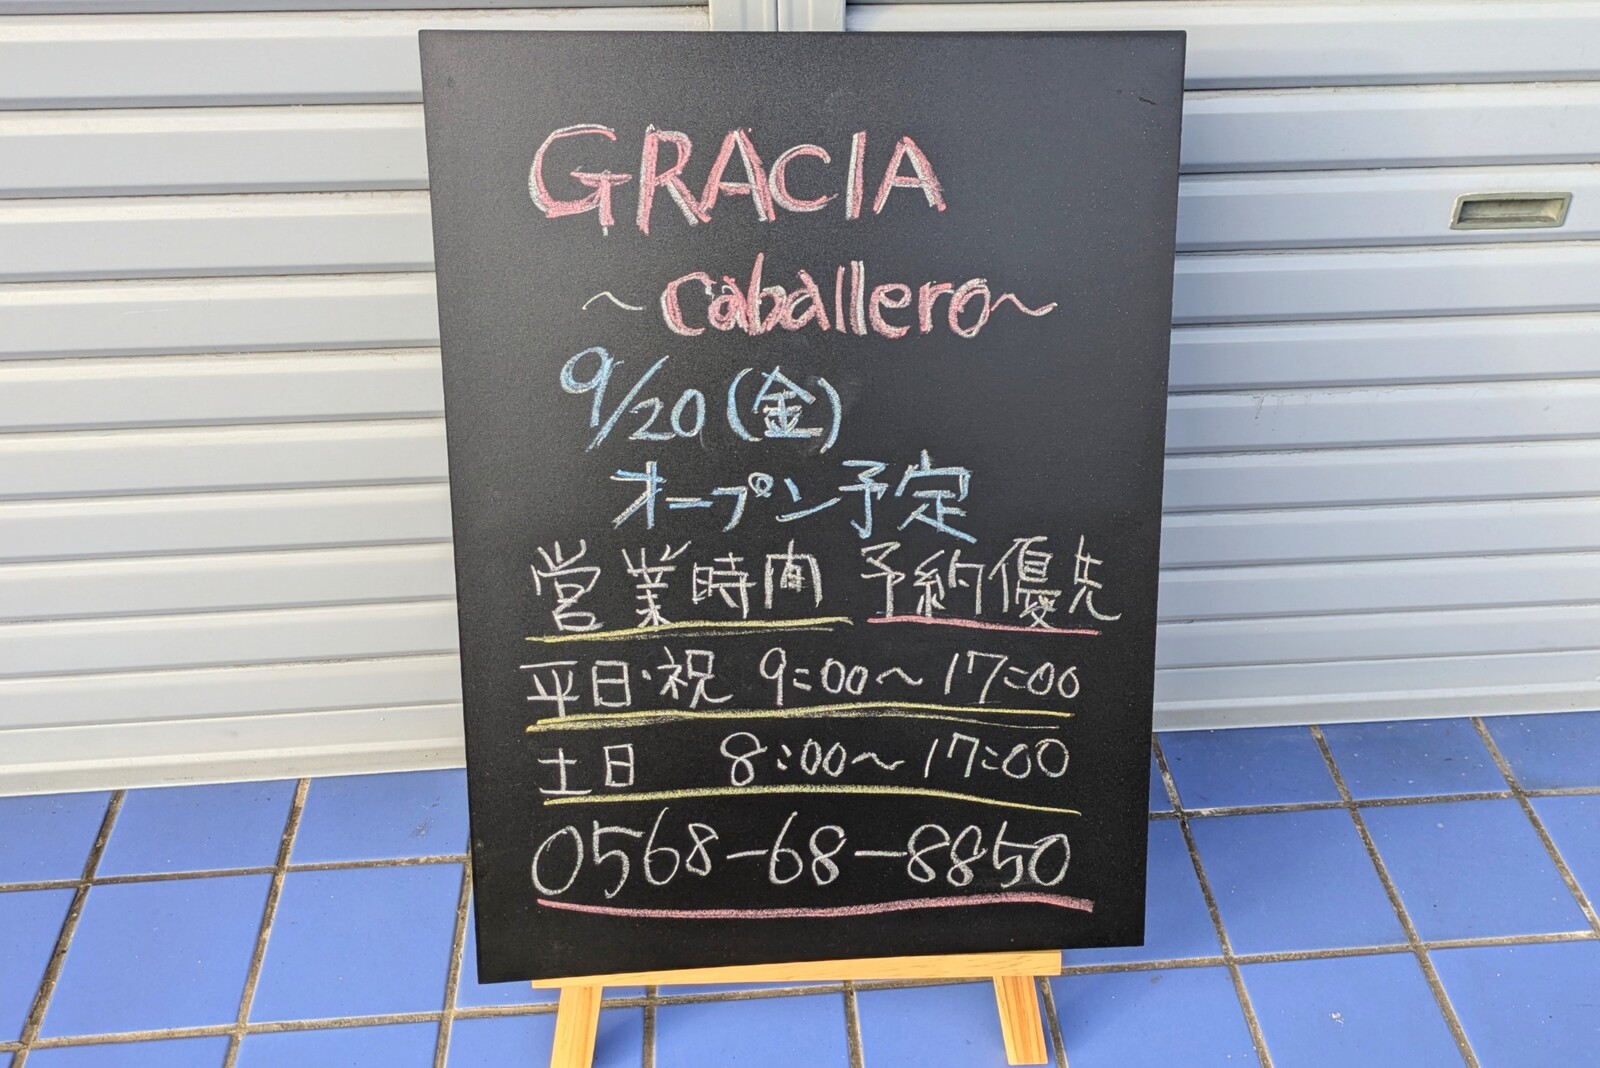 GRACIA
～caballero～
9/20(金)
オープン予定
営業時間 予約優先
平日・祝 9:00～17:00
土日 8:00～17:00
0568-68-8850